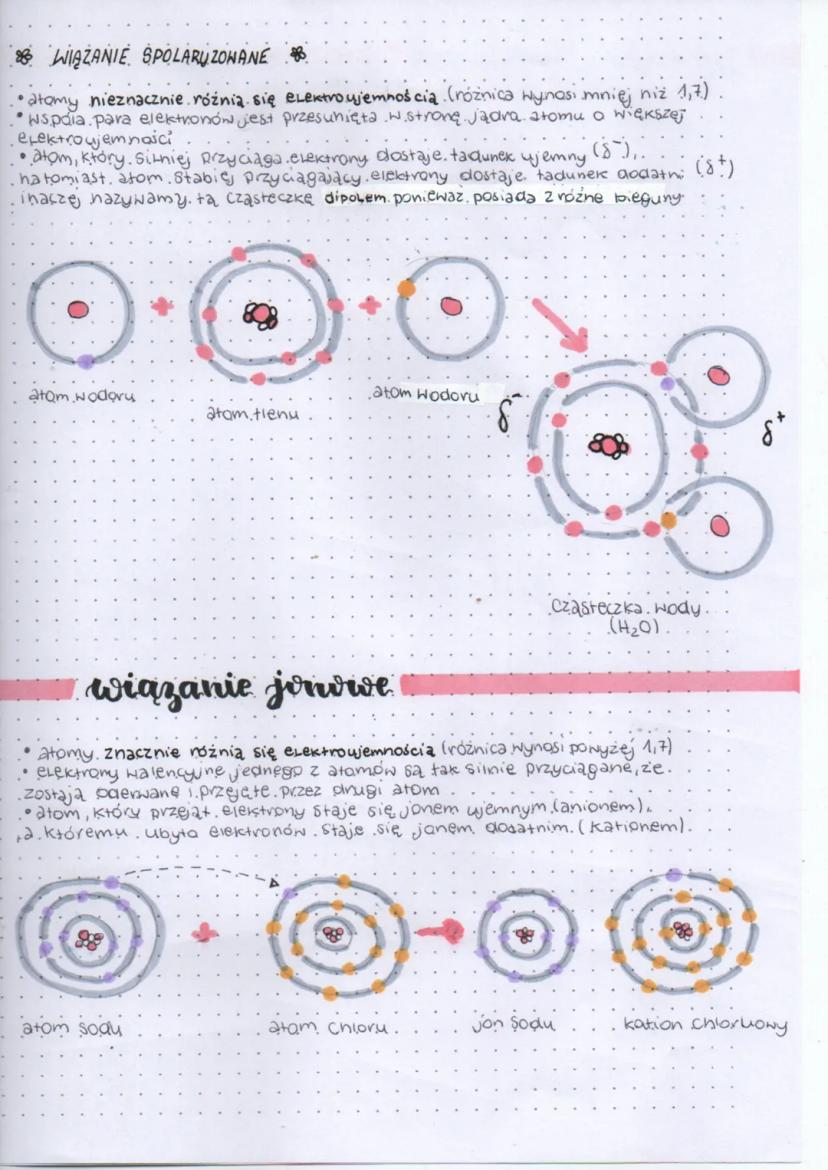 WIĄZANIE SPOLARYZOWANE
• atomy nieznacznie różnią się elektroujemnością (różnica wynosi mniej niż 1,7)
• wspóla para elektronów jest przesunięta w stronę jądra atomu o większej
elektroujemności
• atom, który silniej przyciąga elektrony dostaje ładunek ujemny (δ⁻),
natomiast atom słabiej przyciągający elektrony dostaje ładunek dodatni (δ⁺)
inaczej nazywamy tą cząsteczkę dipolem ponieważ posiada 2 różne bieguny
+ +
atom wodoru
atom tlenu
atom wodoru
δ⁻
δ⁺
cząsteczka wody
(H₂O)
wiązanie jonowe
• atomy znacznie różnią się elektroujemnością (różnica wynosi powyżej 1,7)
• elektrony walencyjne jednego z atomów są tak silnie przyciągane, że
zostają oderwane i przejęte przez drugi atom
• atom, który przejął elektrony staje się jonem ujemnym (anionem),
a któremu ubyło elektronów staje się jonem dodatnim (kationem).
+
atom sodu
atom chloru
jon sodu
kation chlorkowy